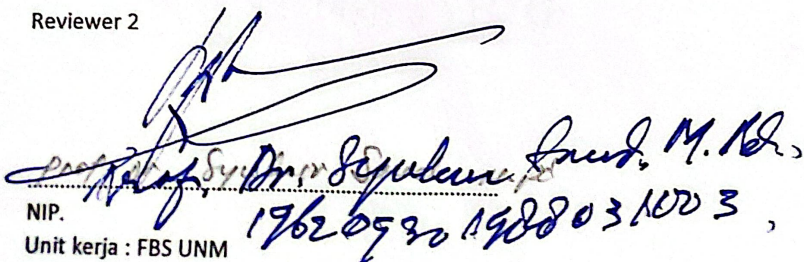 Reviewer 2
Prof. Dr. Syukur Saud, M.Pd.
NIP. 19620930 198803 1003
Unit kerja : FBS UNM